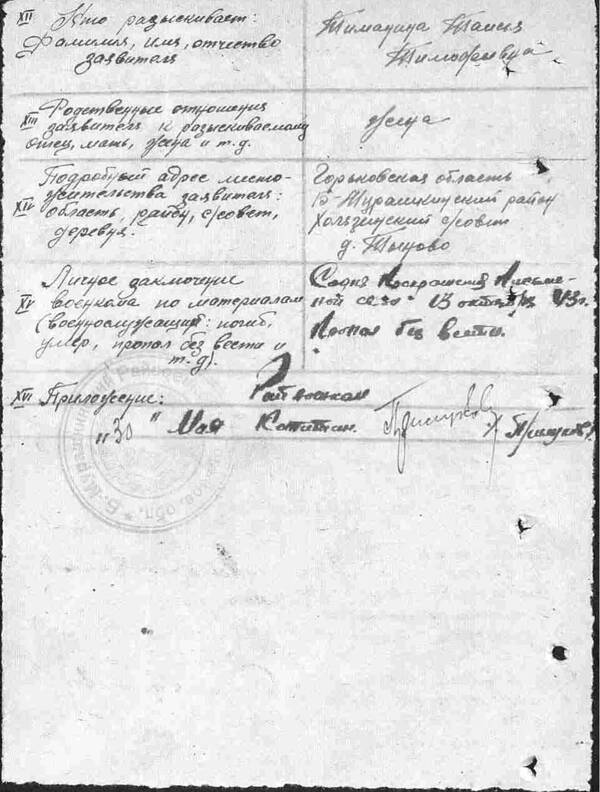 XII Кто разыскивает:
Фамилия, имя, отчество
заявителя
Таисия
Тимофеевна
XIII Родственные отношения
заявителя к разыскиваемому
отец, мать, жена и т.д.
жена
XIV Подробный адрес место-
жительства заявителя:
область, район, с/совет,
деревня.
Горьковская область
Б Мурашкинский район
с/совет
д.
XV Личное заключение
военкома по материалам
(военнослужащий: погиб,
умер, пропал без вести и
т.д).
Письме-
ной связи 13 октября 43г.
Пропал без вести.
XVI Приложение:
Райвоенком
"30" Мая Капитан
Б. Мурашкинский